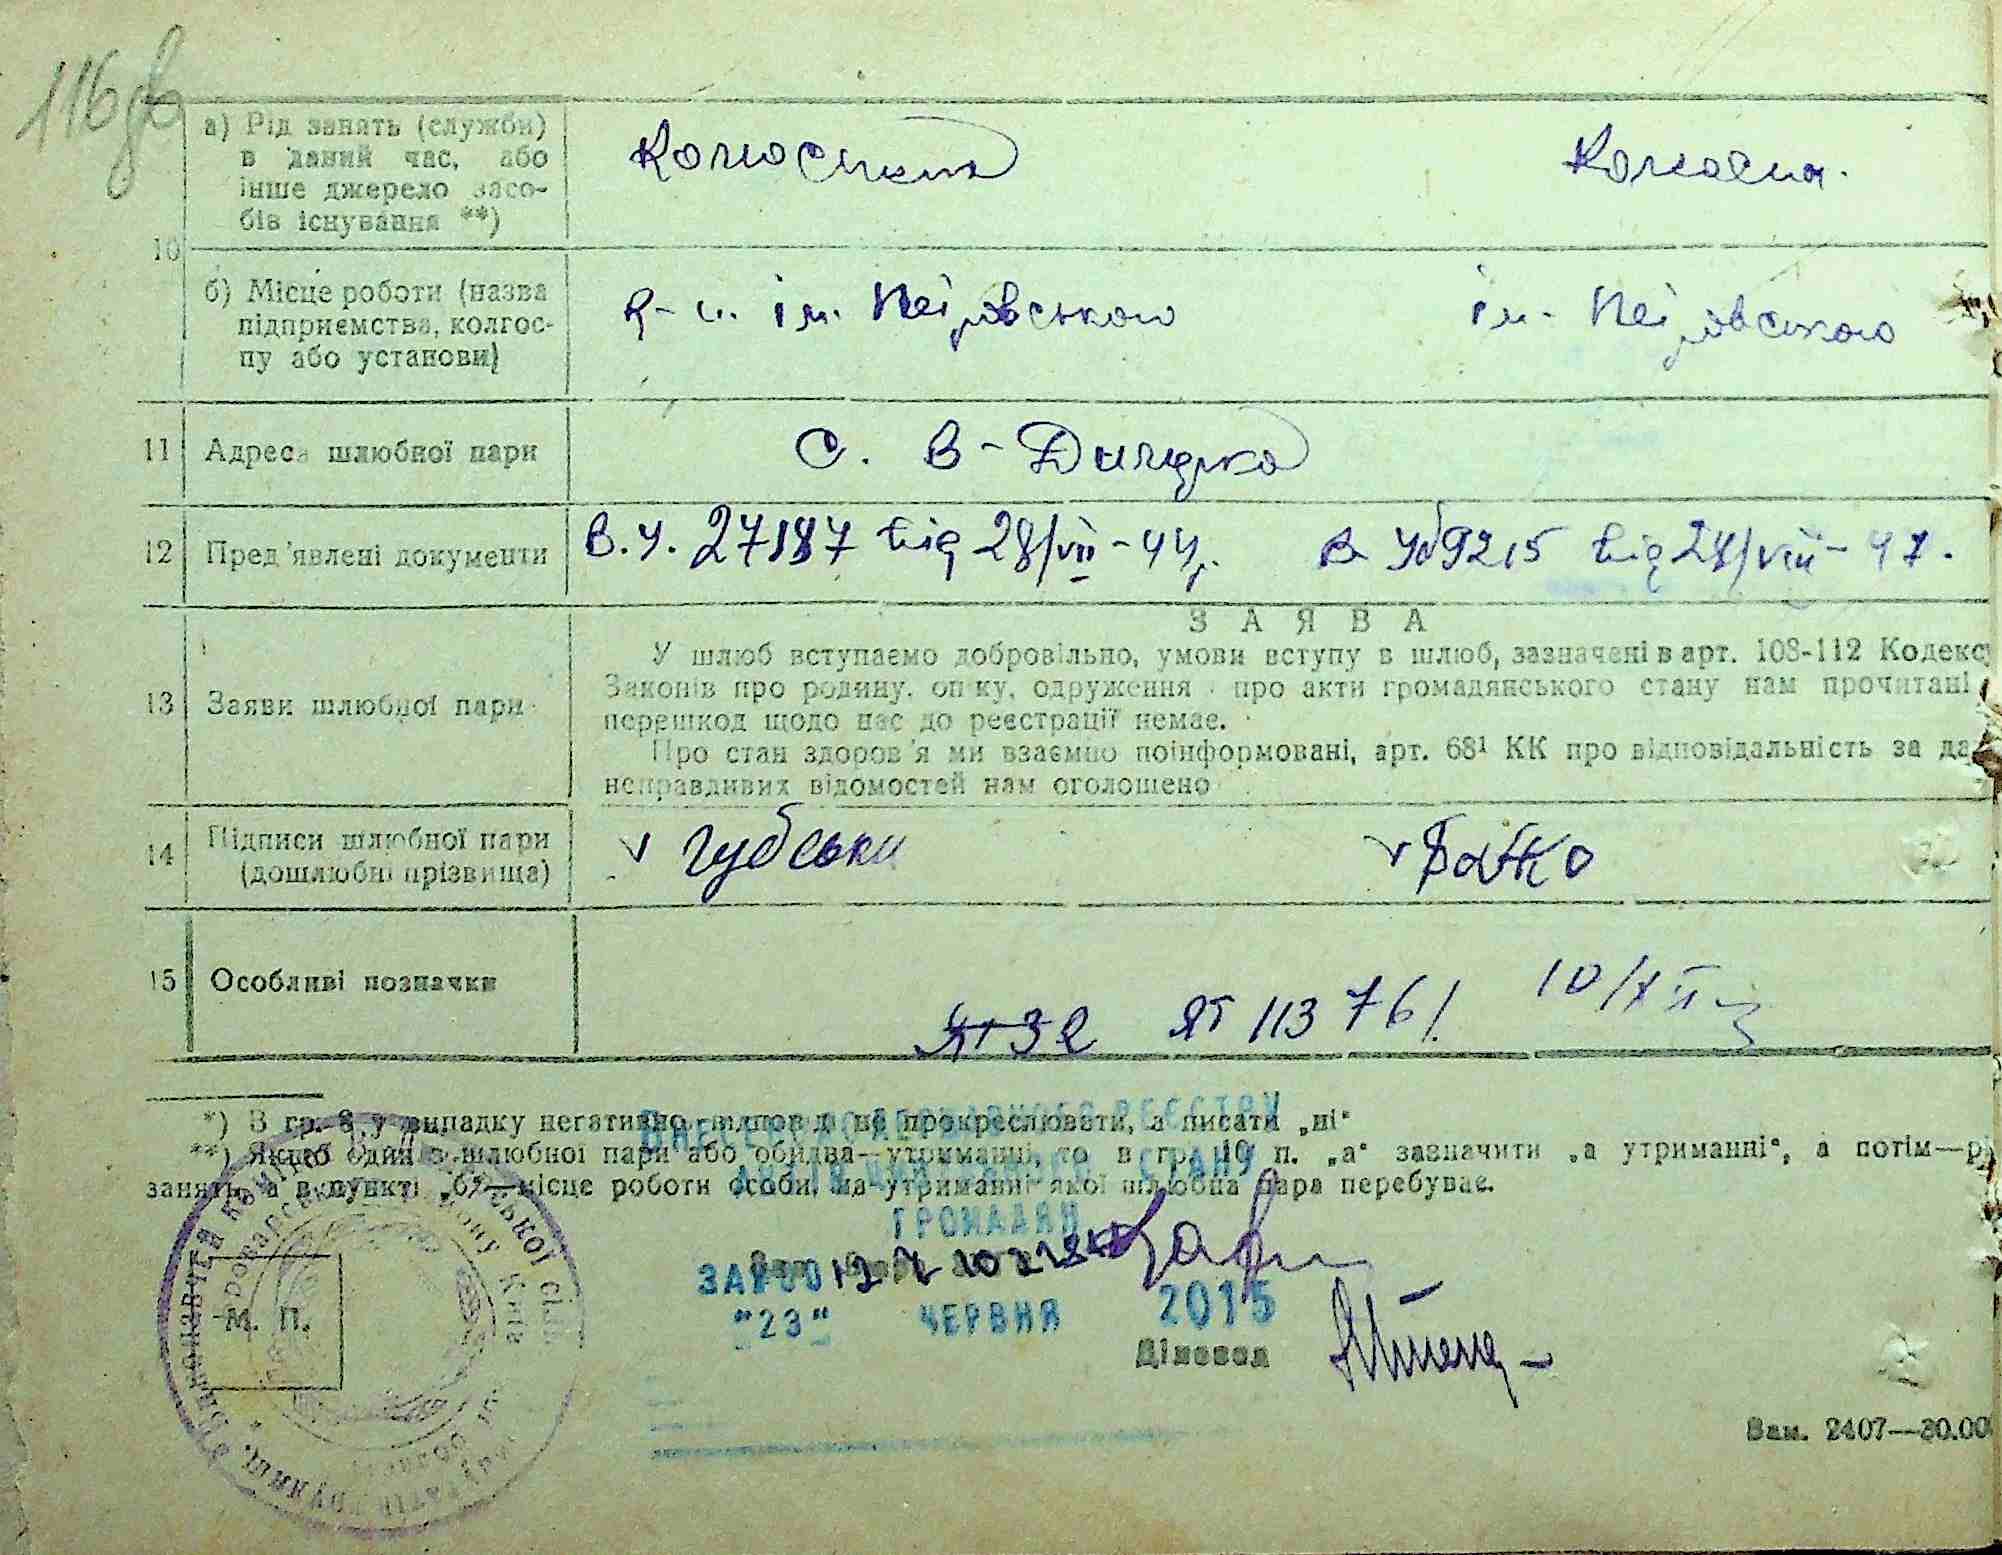 116зв
а) Рід занять (служби)
в даний час, або
інше джерело засо-
бів існування **)
10
Колгоспник
Колгоспн.
б) Місце роботи (назва
підприємства, колгос-
пу або установи)
к-п. ім. Петровського
ім. Петровського
11 Адреса шлюбної пари
с. В-Димерка
12 Пред'явлені документи
27187 від 28/VII-44р. від 28/VIII-47.
ЗАЯВА
У шлюб вступаємо добровільно, умови вступу в шлюб, зазначені в арт. 108-112 Кодексу
Законів про родину, опіку, одруження про акти громадянського стану нам прочитані
перешкод щодо нас до реєстрації немає.
13 Заяви шлюбної пари
Про стан здоров'я ми взаємно поінформовані, арт. 68¹ КК про відповідальність за да
неправдивих відомостей нам оголошено
14 Підписи шлюбної пари
(дошлюбні прізвища)
v Губськи
v Бойко
15 Особливі позначки
ЯТ 32 ЯТ 113761. 10/XII
*) В гр. 8 у випадку негативно відповіді не прокреслювати, а писати „ні"
**) Якщо один з шлюбної пари або обидва—утриманці, то в гр. 10 п. „а" зазначити „а утриманні", а потім—рі
занять, а в пункті „б"—місце роботи особи, на утриманні якої шлюбна пара перебуває.
ВНЕСЕНО ДО ДЕРЖАВНОГО РЕЄСТРУ
АКТІВ ЦИВІЛЬНОГО СТАНУ
ГРОМАДЯН
ЗА №
"23" ЧЕРВНЯ 2015
М. П.
Діловод
Зам. 2407—30.00